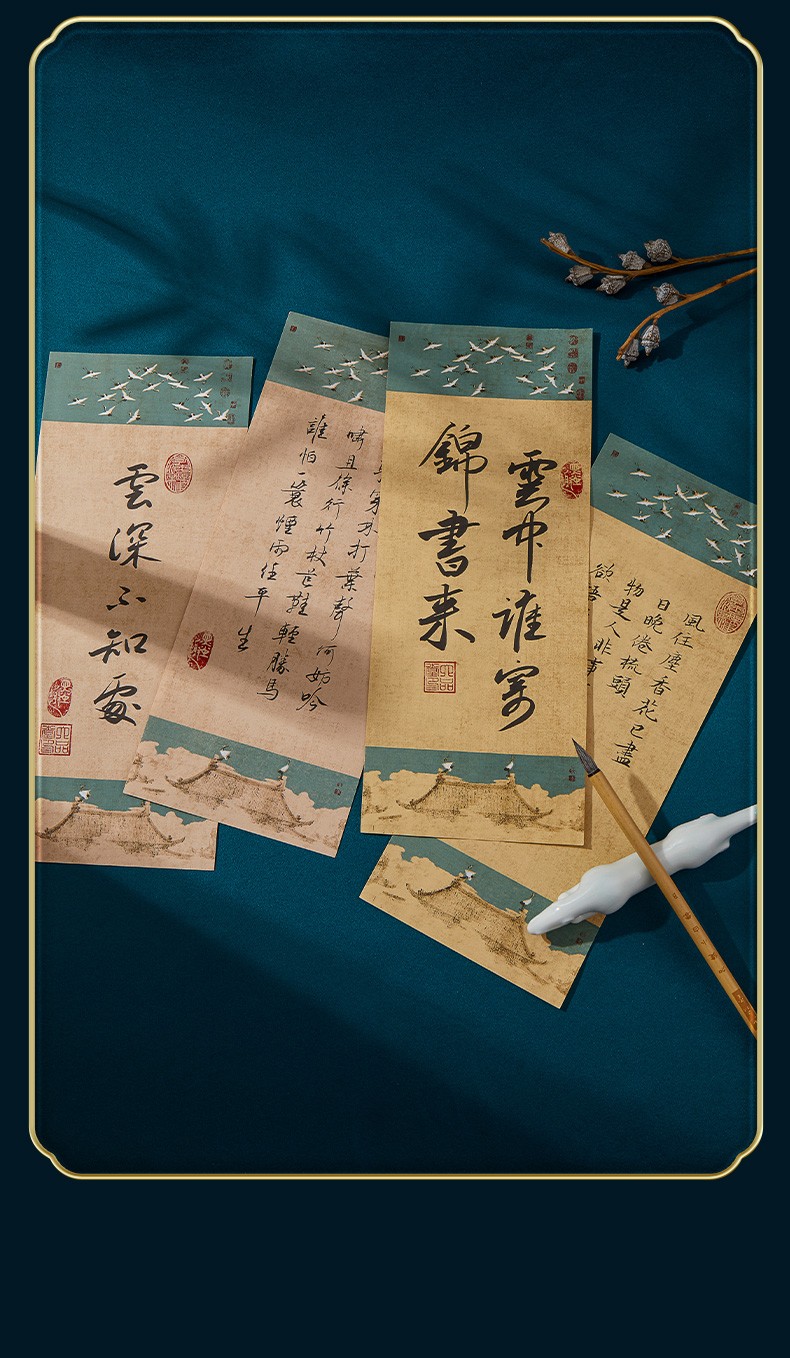 雲深不知處
林打葉聲何妨吟
嘯且徐行竹杖芒鞵輕勝馬
誰怕一蓑煙雨任平生
雲中誰寄
錦書来
風住塵香花已盡
日晚倦梳頭
物是人非事
欲語